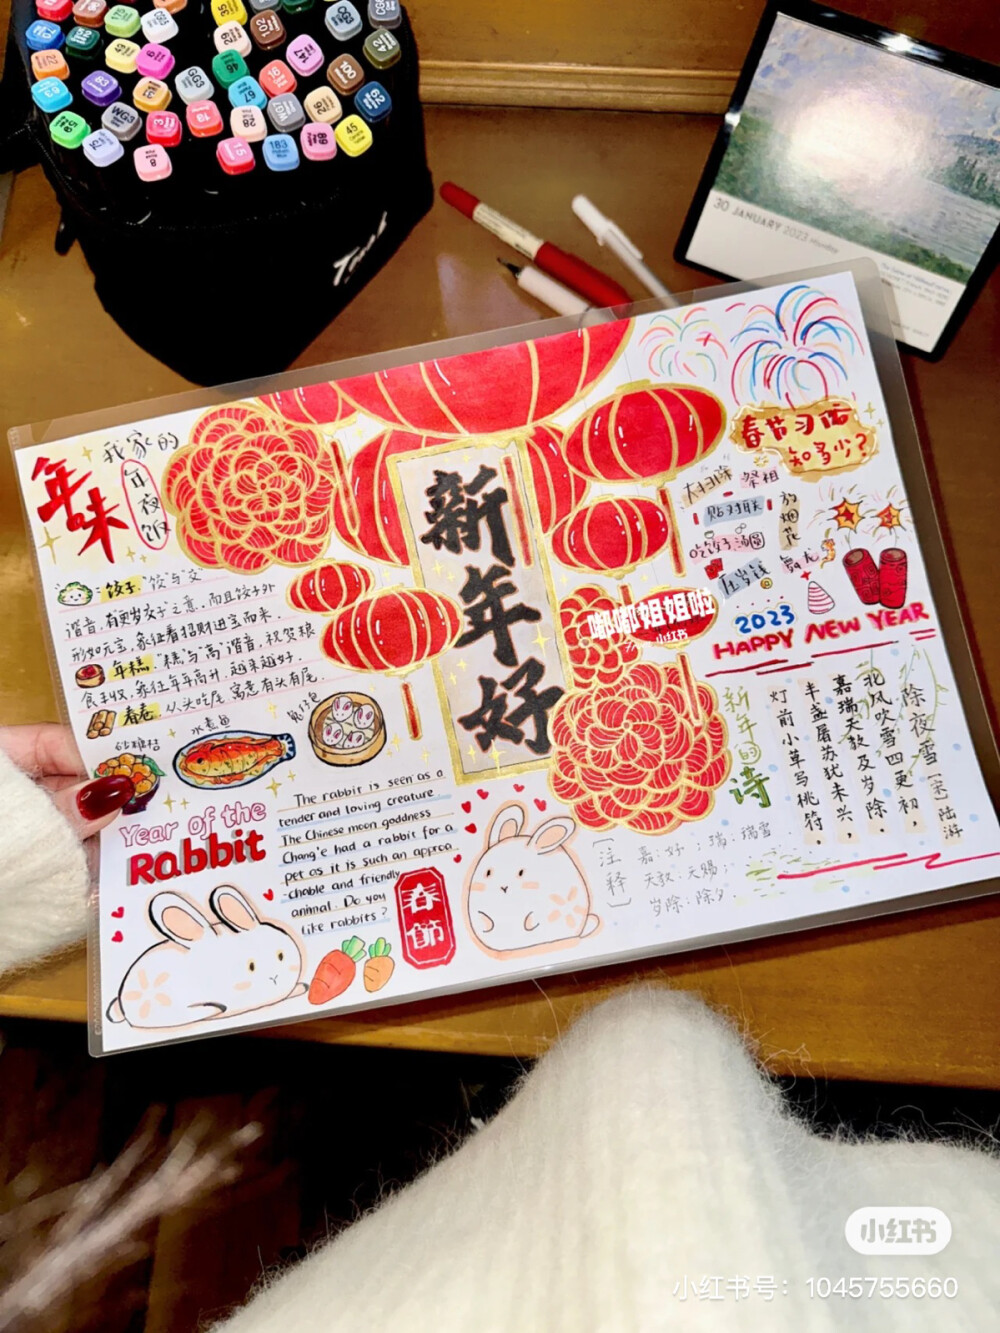 30 JANUARY 2023 Monday
Touch
我家的
年味
年夜饭
饺子 "饺"与"交"
谐音,有更岁交子之意,而且饺子外
形如元宝,象征着招财进宝而来.
年糕 "糕"与"高"谐音,祝贺粮
食丰收,象征年年高升,越来越好.
春卷 从头吃尾,寓意有头有尾.
砂糖桔
水煮鱼
兔仔包
新年好
嘟嘟姐姐啦
小红书
春节习俗
知多少?
大扫除 祭祖
贴对联
放烟花
吃饺子汤圆
压岁钱
舞龙
2023
HAPPY NEW YEAR
Year of the
Rabbit
The rabbit is seen as a
tender and loving creature.
The Chinese moon goddness
Chang'e had a rabbit for a
pet as it is such an approa
chable and friendly
animal. Do you
like rabbits?
春節
新年的诗
除夜雪 [宋] 陆游
北风吹雪四更初,
嘉瑞天教及岁除.
半盏屠苏犹未举,
灯前小草写桃符.
[注释]
嘉:好;瑞:瑞雪
天教:天赐;
岁除:除夕.
小红书
小红书号:1045755660